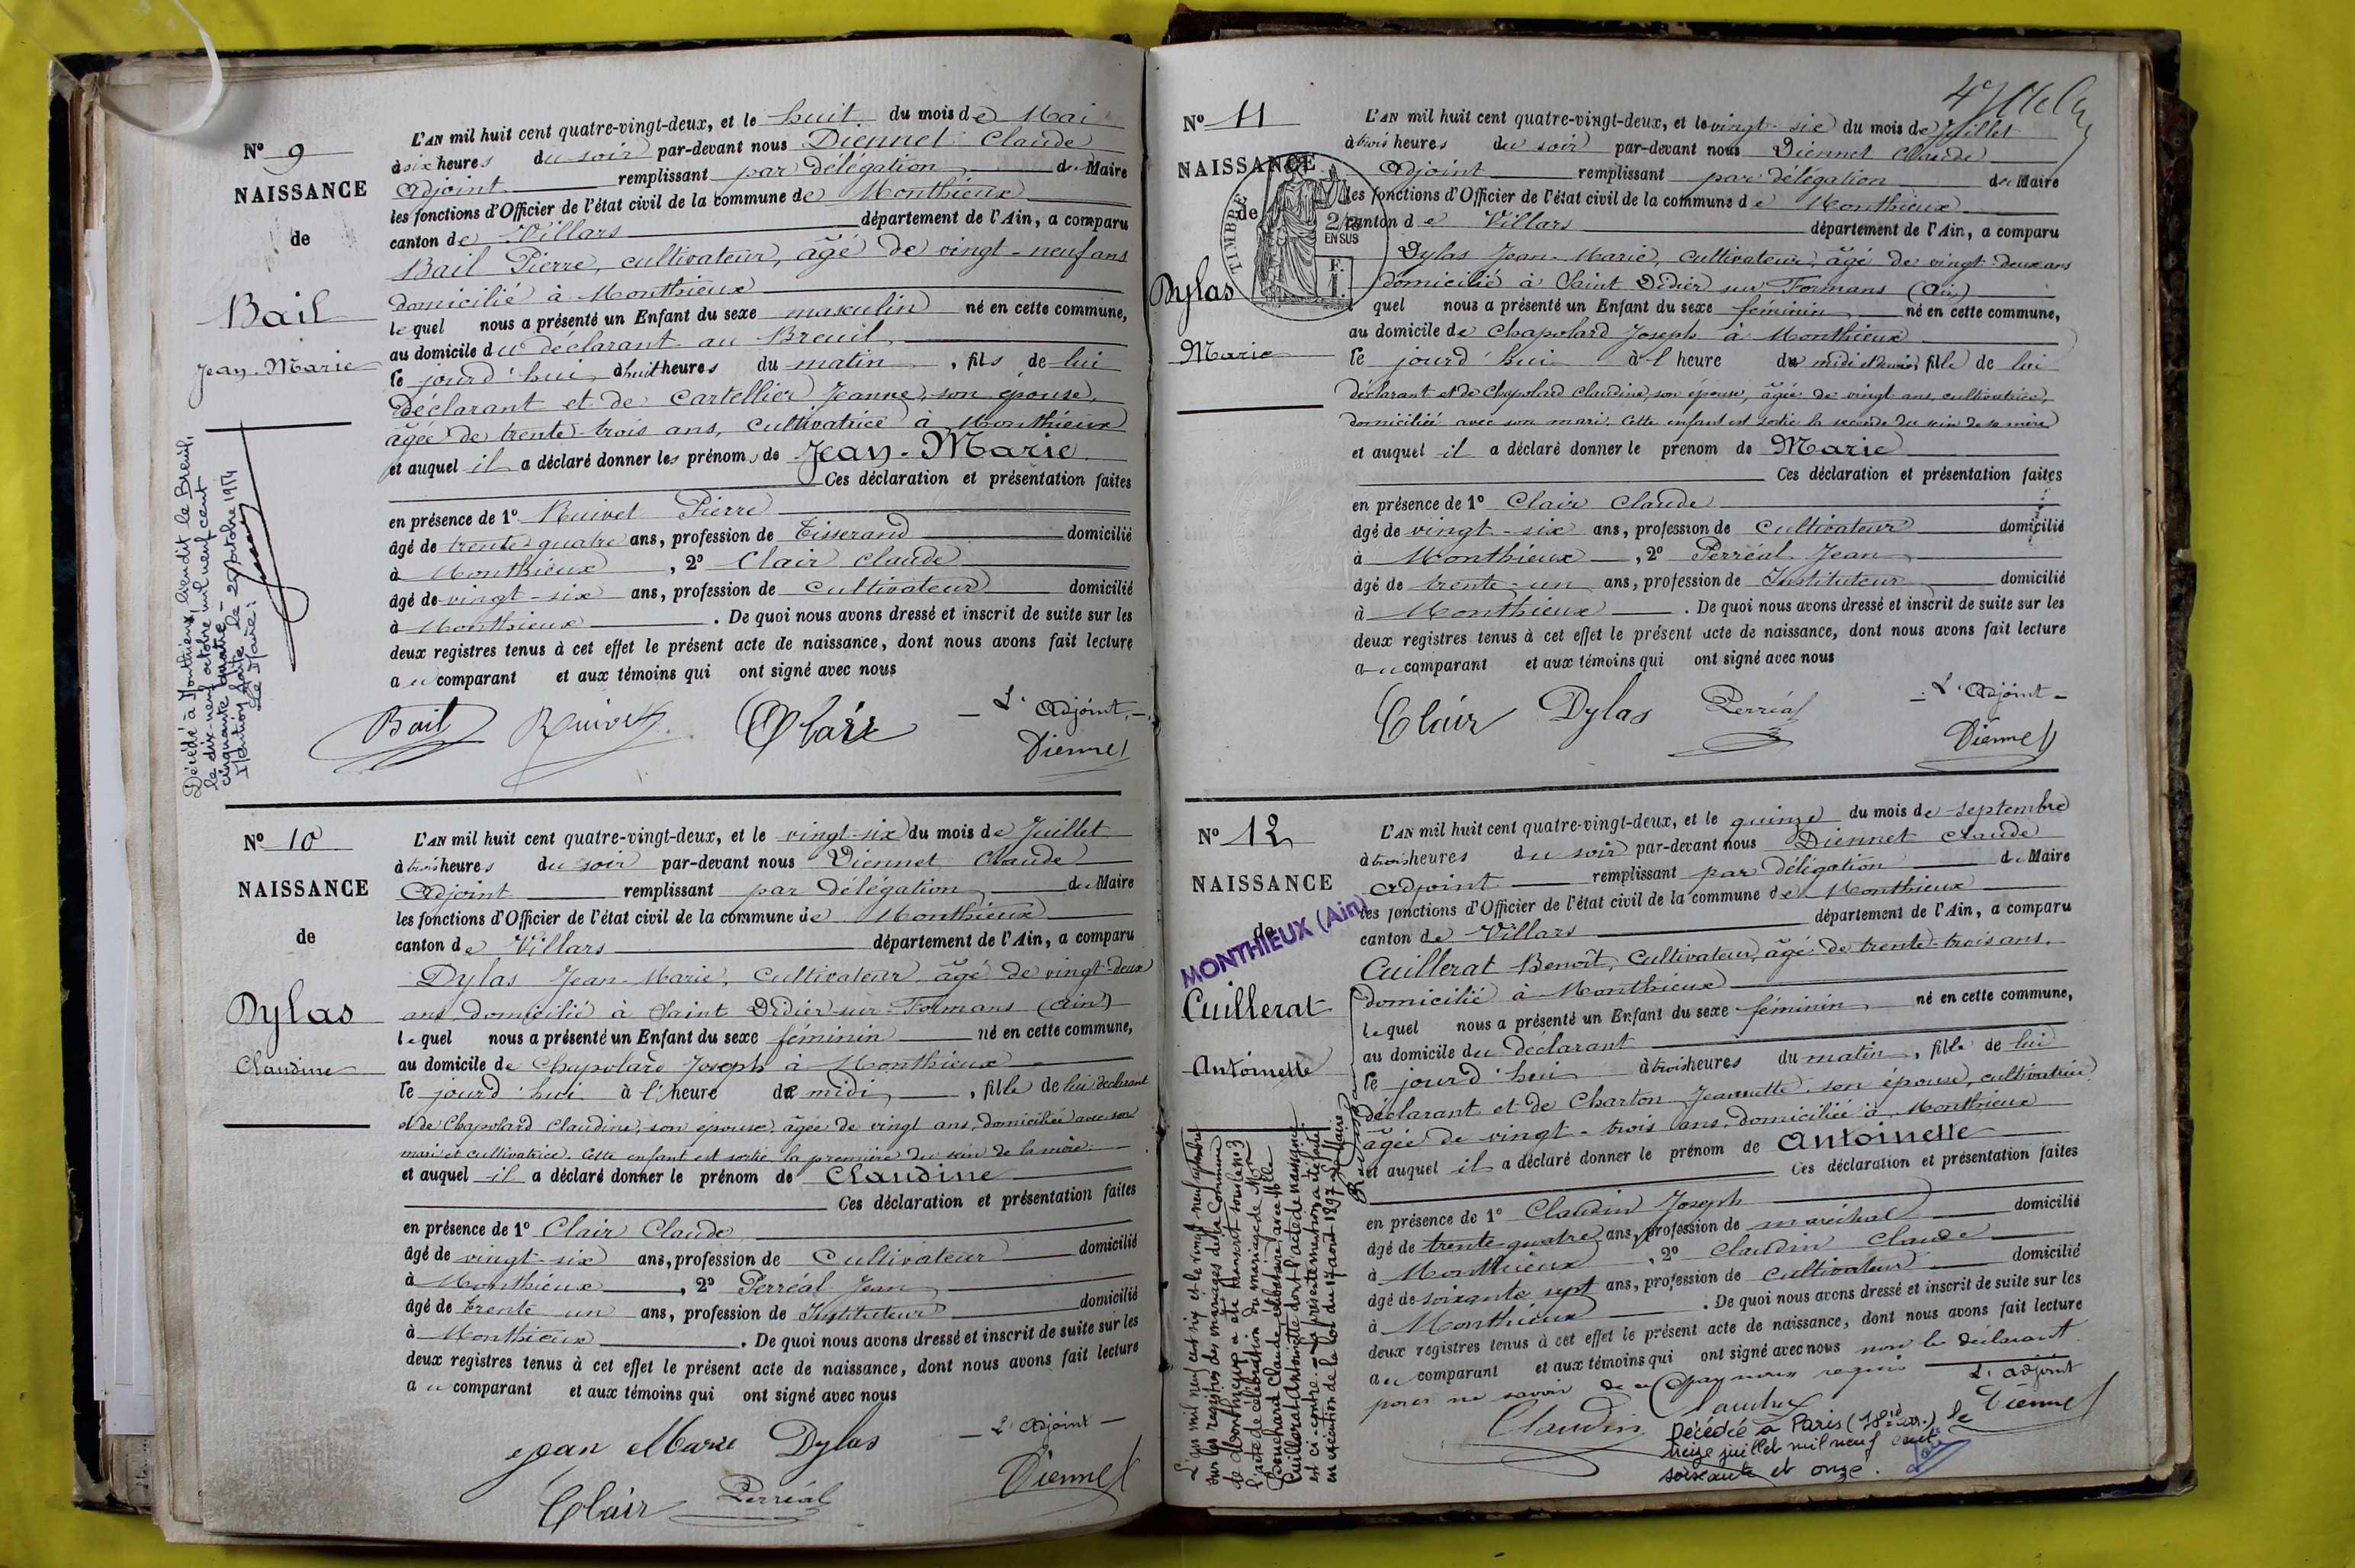 N° 9
NAISSANCE
de
Bail
Jean-Marie
L'AN mil huit cent quatre-vingt-deux, et le huit du mois de Mai
à six heures du soir par-devant nous Diennet Claude
Adjoint remplissant par délégation du Maire
les fonctions d'Officier de l'état civil de la commune de Monthieux
canton de Villars département de l'Ain, a comparu
Bail Pierre, cultivateur, âgé de vingt-neuf ans
domicilié à Monthieux
lequel nous a présenté un Enfant du sexe masculin né en cette commune,
au domicile du déclarant au Breuil,
le jourd'hui, à huit heures du matin, fils de lui
déclarant et de Cartellier Jeanne, son épouse,
âgée de trente-trois ans, cultivatrice à Monthieux
et auquel il a déclaré donner les prénoms de Jean-Marie.
Ces déclaration et présentation faites
en présence de 1° Ruivet Pierre
âgé de trente quatre ans, profession de Tisserand domicilié
à Monthieux, 2° Clair Claude
âgé de vingt-six ans, profession de cultivateur domicilié
à Monthieux. De quoi nous avons dressé et inscrit de suite sur les
deux registres tenus à cet effet le présent acte de naissance, dont nous avons fait lecture
au comparant et aux témoins qui ont signé avec nous
Bail Ruivet Clair L'Adjoint,
Diennet
Décédé à Monthieux, lieu dit le Breuil,
le dix-neuf octobre mil neuf cent
cinquante quatre -
Mention faite le 20 octobre 1954
Le Maire:
N° 10
NAISSANCE
de
Dylas
Claudine
L'AN mil huit cent quatre-vingt-deux, et le vingt-six du mois de Juillet
à trois heures du soir par-devant nous Diennet Claude
Adjoint remplissant par délégation du Maire
les fonctions d'Officier de l'état civil de la commune de Monthieux
canton de Villars département de l'Ain, a comparu
Dylas Jean-Marie, cultivateur, âgé de vingt-deux
ans, domicilié à Saint Didier-sur-Formans (Ain)
lequel nous a présenté un Enfant du sexe féminin né en cette commune,
au domicile de Chapolard Joseph à Monthieux
le jourd'hui à l'heure de midi, fille de lui déclarant
et de Chapolard Claudine, son épouse, âgée de vingt ans, domiciliée avec son
mari et cultivatrice. Cette enfant est sortie la première du sein de la mère.
et auquel il a déclaré donner le prénom de Claudine
Ces déclaration et présentation faites
en présence de 1° Clair Claude
âgé de vingt-six ans, profession de Cultivateur domicilié
à Monthieux, 2° Perréal Jean
âgé de trente un ans, profession de Instituteur domicilié
à Monthieux. De quoi nous avons dressé et inscrit de suite sur les
deux registres tenus à cet effet le présent acte de naissance, dont nous avons fait lecture
au comparant et aux témoins qui ont signé avec nous
Jean Marie Dylas L'Adjoint
Clair Perréal Diennet
N° 11
NAISSANCE
de
Dylas
Marie
TIMBRE
2/10
EN SUS
L'AN mil huit cent quatre-vingt-deux, et le vingt-six du mois de Juillet
à trois heures du soir par-devant nous Diennet Claude
Adjoint remplissant par délégation du Maire
les fonctions d'Officier de l'état civil de la commune de Monthieux
canton de Villars département de l'Ain, a comparu
Dylas Jean-Marie, cultivateur, âgé de vingt-deux ans
domicilié à Saint Didier sur Formans (Ain)
quel nous a présenté un Enfant du sexe féminin né en cette commune,
au domicile de Chapolard Joseph à Monthieux
le jourd'hui à l'heure de midi fille de lui
déclarant et de Chapolard Claudine, son épouse, âgée de vingt ans, cultivatrice,
domiciliée avec son mari. Cette enfant est sortie la seconde du sein de sa mère
et auquel il a déclaré donner le prenom de Marie
Ces déclaration et présentation faites
en présence de 1° Clair Claude
âgé de vingt-six ans, profession de Cultivateur domicilié
à Monthieux, 2° Perréal Jean
âgé de trente-un ans, profession de Instituteur domicilié
à Monthieux. De quoi nous avons dressé et inscrit de suite sur les
deux registres tenus à cet effet le présent acte de naissance, dont nous avons fait lecture
au comparant et aux témoins qui ont signé avec nous
Clair Dylas Perréal L'Adjoint
Diennet
N° 12
NAISSANCE
de
MONTHIEUX (Ain)
Cuillerat
Antoinette
L'AN mil huit cent quatre-vingt-deux, et le quinze du mois de septembre
à trois heures du soir par-devant nous Diennet Claude
Adjoint remplissant par délégation du Maire
les fonctions d'Officier de l'état civil de la commune de Monthieux
canton de Villars département de l'Ain, a comparu
Cuillerat Benoît, Cultivateur, âgé de trente-trois ans,
domicilié à Monthieux
lequel nous a présenté un Enfant du sexe féminin né en cette commune,
au domicile du déclarant
le jourd'hui à trois heures du matin, fille de lui
déclarant et de Charton Jeannette, son épouse, cultivatrice,
âgée de vingt-trois ans, domiciliée à Monthieux
et auquel il a déclaré donner le prénom de Antoinette
Ces déclaration et présentation faites
en présence de 1° Claudin Joseph
âgé de trente quatre ans, profession de maréchal domicilié
à Monthieux, 2° Claudin Claude
âgé de soixante sept ans, profession de cultivateur domicilié
à Monthieux. De quoi nous avons dressé et inscrit de suite sur les
deux registres tenus à cet effet le présent acte de naissance, dont nous avons fait lecture
au comparant et aux témoins qui ont signé avec nous non le déclarant
pour ne savoir de ce requis
L'adjoint
Claudin Claudin Diennet
Décédée à Paris (18è arr.) le
treize juillet mil neuf cent
soixante et onze.
L'an mil neuf cent six et le vingt-neuf septembre
sur les registres des mariages de la Commune
de Monthieux a été transcrit sous le n° 3
l'acte de célébration du mariage de Mr
Bouchard Claude avec Mlle
Cuillerat Antoinette dont l'acte de naissance
est ci-contre. La présente mention a été faite
en exécution de la loi du 17 août 1897. Le Maire